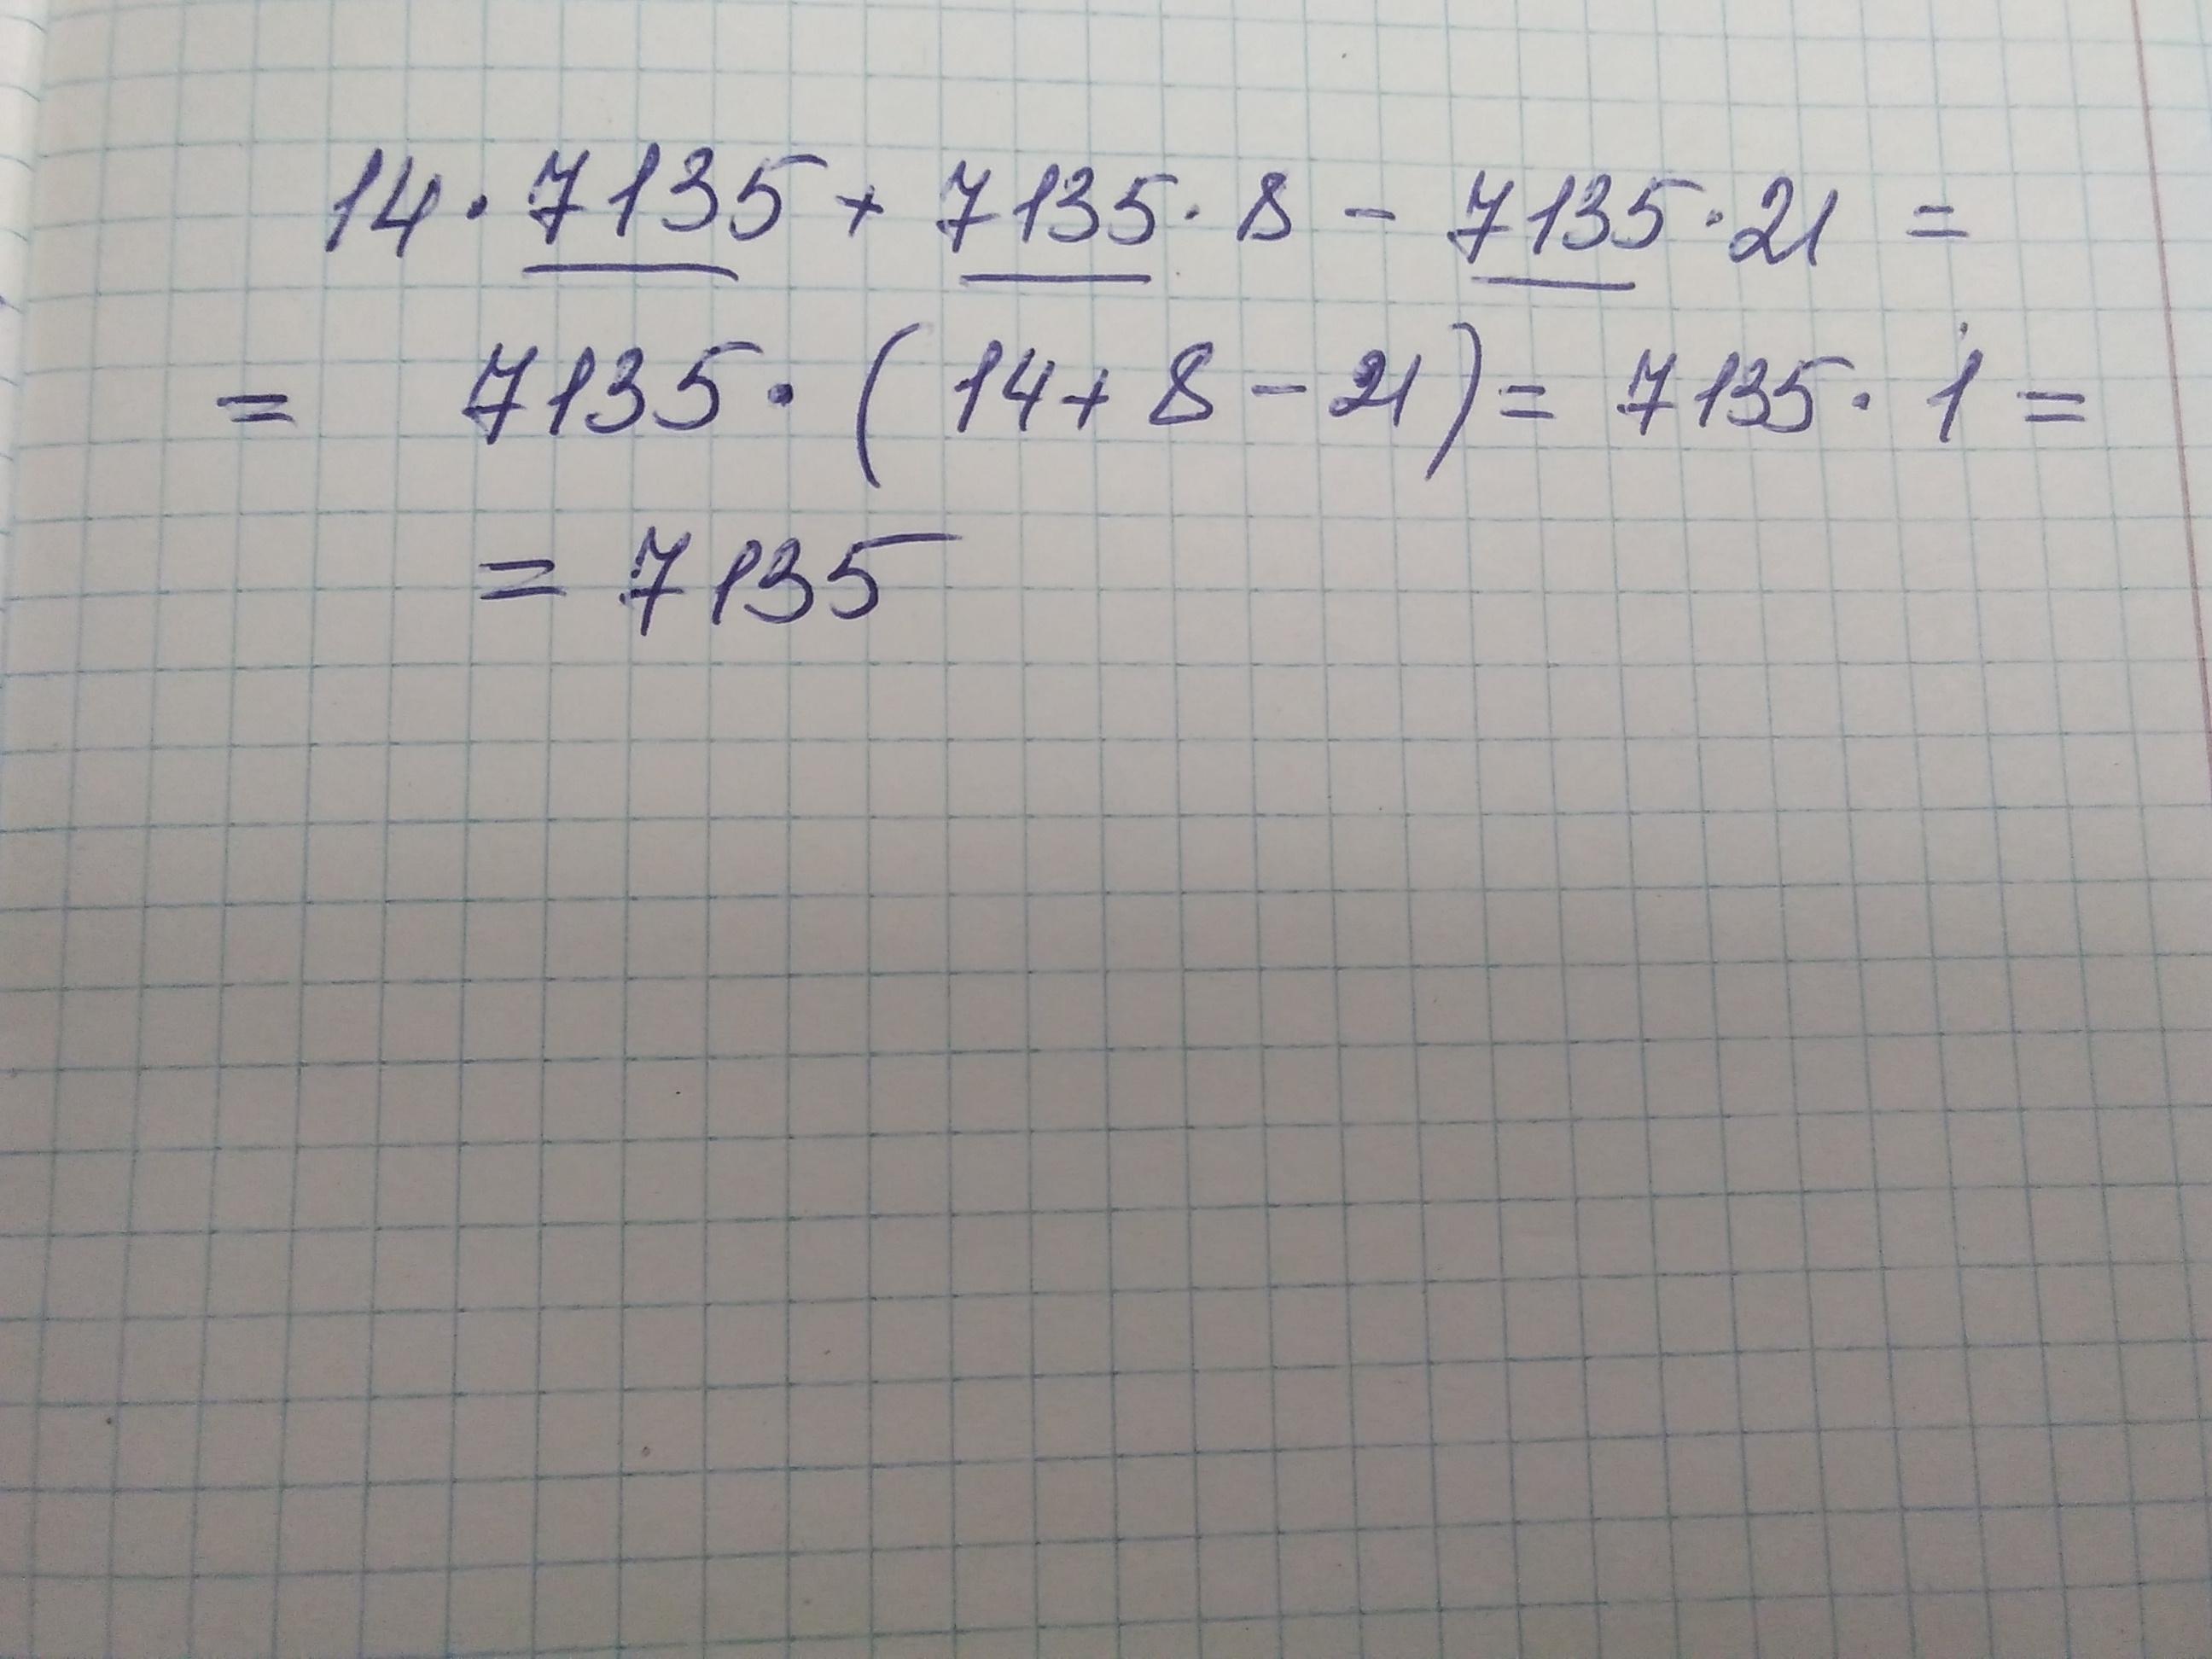 14 · 7135 + 7135 · 8 - 7135 · 21 =
= 7135 · (14 + 8 - 21) = 7135 · 1 =
= 7135